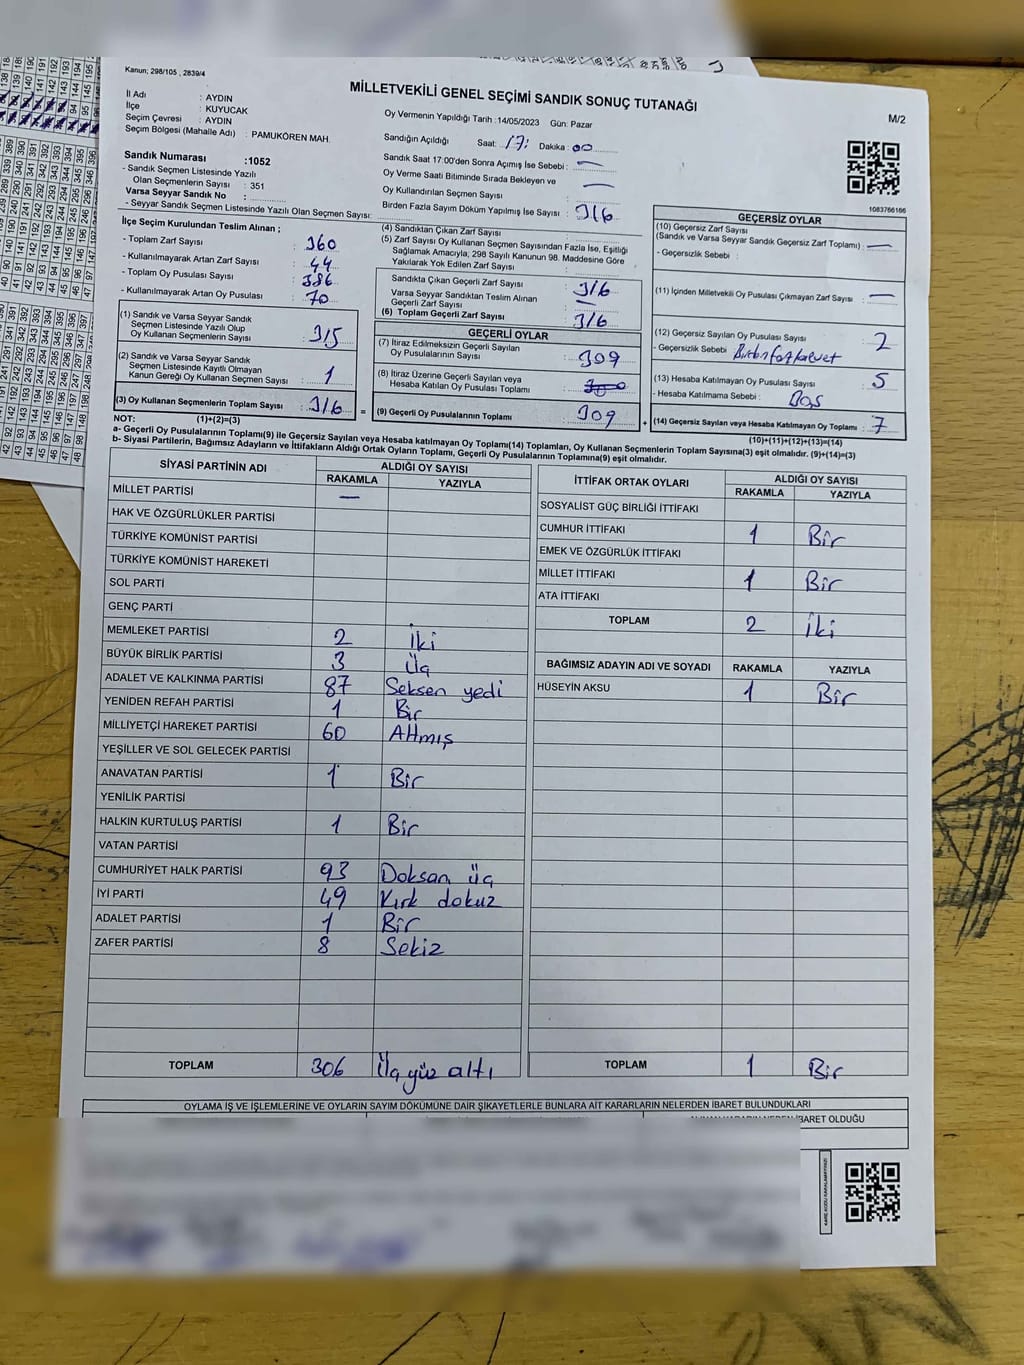 Kanun: 298/105 , 2839/4
MİLLETVEKİLİ GENEL SEÇİMİ SANDIK SONUÇ TUTANAĞI
M/2
İl Adı : AYDIN
İlçe : KUYUCAK
Seçim Çevresi : AYDIN
Seçim Bölgesi (Mahalle Adı) : PAMUKÖREN MAH.
Oy Vermenin Yapıldığı Tarih :14/05/2023 Gün: Pazar
Sandığın Açıldığı Saat: 17: Dakika: 00
Sandık Saat 17:00'den Sonra Açımış İse Sebebi : —
Oy Verme Saati Bitiminde Sırada Bekleyen ve
Oy Kullandırılan Seçmen Sayısı : —
Birden Fazla Sayım Döküm Yapılmış İse Sayısı : 316
Sandık Numarası :1052
- Sandık Seçmen Listesinde Yazılı
Olan Seçmenlerin Sayısı : 351
Varsa Seyyar Sandık No :
- Seyyar Sandık Seçmen Listesinde Yazılı Olan Seçmen Sayısı:
1083766166
İlçe Seçim Kurulundan Teslim Alınan ;
- Toplam Zarf Sayısı : 360
- Kullanılmayarak Artan Zarf Sayısı : 44
- Toplam Oy Pusulası Sayısı : 386
- Kullanılmayarak Artan Oy Pusulası : 70
(1) Sandık ve Varsa Seyyar Sandık
Seçmen Listesinde Yazılı Olup
Oy Kullanan Seçmenlerin Sayısı : 315
(2) Sandık ve Varsa Seyyar Sandık
Seçmen Listesinde Kayıtlı Olmayan
Kanun Gereği Oy Kullanan Seçmen Sayısı : 1
(3) Oy Kullanan Seçmenlerin Toplam Sayısı : 316
(4) Sandıktan Çıkan Zarf Sayısı :
(5) Zarf Sayısı Oy Kullanan Seçmen Sayısından Fazla İse, Eşitliği
Sağlamak Amacıyla, 298 Sayılı Kanunun 98. Maddesine Göre
Yakılarak Yok Edilen Zarf Sayısı :
Sandıkta Çıkan Geçerli Zarf Sayısı : 316
Varsa Seyyar Sandıktan Teslim Alınan
Geçerli Zarf Sayısı : —
(6) Toplam Geçerli Zarf Sayısı : 316
GEÇERLİ OYLAR
(7) İtiraz Edilmeksizin Geçerli Sayılan
Oy Pusulalarının Sayısı : 309
(8) İtiraz Üzerine Geçerli Sayılan veya
Hesaba Katılan Oy Pusulası Toplamı :
= (9) Geçerli Oy Pusulalarının Toplamı : 309 +
GEÇERSİZ OYLAR
(10) Geçersiz Zarf Sayısı
(Sandık ve Varsa Seyyar Sandık Geçersiz Zarf Toplamı) : —
- Geçersizlik Sebebi :
(11) İçinden Milletvekili Oy Pusulası Çıkmayan Zarf Sayısı : —
(12) Geçersiz Sayılan Oy Pusulası Sayısı : 2
- Geçersizlik Sebebi :
(13) Hesaba Katılmayan Oy Pusulası Sayısı : 5
- Hesaba Katılmama Sebebi : Boş
(14) Geçersiz Sayılan veya Hesaba Katılmayan Oy Toplamı : 7
NOT: (1)+(2)=(3)
(10)+(11)+(12)+(13)=(14)
a- Geçerli Oy Pusulalarının Toplamı(9) ile Geçersiz Sayılan veya Hesaba katılmayan Oy Toplamı(14) Toplamları, Oy Kullanan Seçmenlerin Toplam Sayısına(3) eşit olmalıdır. (9)+(14)=(3)
b- Siyasi Partilerin, Bağımsız Adayların ve İttifakların Aldığı Ortak Oyların Toplamı, Geçerli Oy Pusulalarının Toplamına(9) eşit olmalıdır.
SİYASİ PARTİNİN ADI ALDIĞI OY SAYISI
RAKAMLA YAZIYLA
MİLLET PARTİSİ —
HAK VE ÖZGÜRLÜKLER PARTİSİ
TÜRKİYE KOMÜNİST PARTİSİ
TÜRKİYE KOMÜNİST HAREKETİ
SOL PARTİ
GENÇ PARTİ
MEMLEKET PARTİSİ 2 İki
BÜYÜK BİRLİK PARTİSİ 3 Üç
ADALET VE KALKINMA PARTİSİ 87 Seksen yedi
YENİDEN REFAH PARTİSİ 1 Bir
MİLLİYETÇİ HAREKET PARTİSİ 60 Altmış
YEŞİLLER VE SOL GELECEK PARTİSİ
ANAVATAN PARTİSİ 1 Bir
YENİLİK PARTİSİ
HALKIN KURTULUŞ PARTİSİ 1 Bir
VATAN PARTİSİ
CUMHURİYET HALK PARTİSİ 93 Doksan üç
İYİ PARTİ 49 Kırk dokuz
ADALET PARTİSİ 1 Bir
ZAFER PARTİSİ 8 Sekiz
TOPLAM 306 Üç yüz altı
İTTİFAK ORTAK OYLARI ALDIĞI OY SAYISI
RAKAMLA YAZIYLA
SOSYALİST GÜÇ BİRLİĞİ İTTİFAKI
CUMHUR İTTİFAKI 1 Bir
EMEK VE ÖZGÜRLÜK İTTİFAKI
MİLLET İTTİFAKI 1 Bir
ATA İTTİFAKI
TOPLAM 2 İki
BAĞIMSIZ ADAYIN ADI VE SOYADI RAKAMLA YAZIYLA
HÜSEYİN AKSU 1 Bir
TOPLAM 1 Bir
OYLAMA İŞ VE İŞLEMLERİNE VE OYLARIN SAYIM DÖKÜMÜNE DAİR ŞİKAYETLERLE BUNLARA AİT KARARLARIN NELERDEN İBARET BULUNDUKLARI
İBARET OLDUĞU